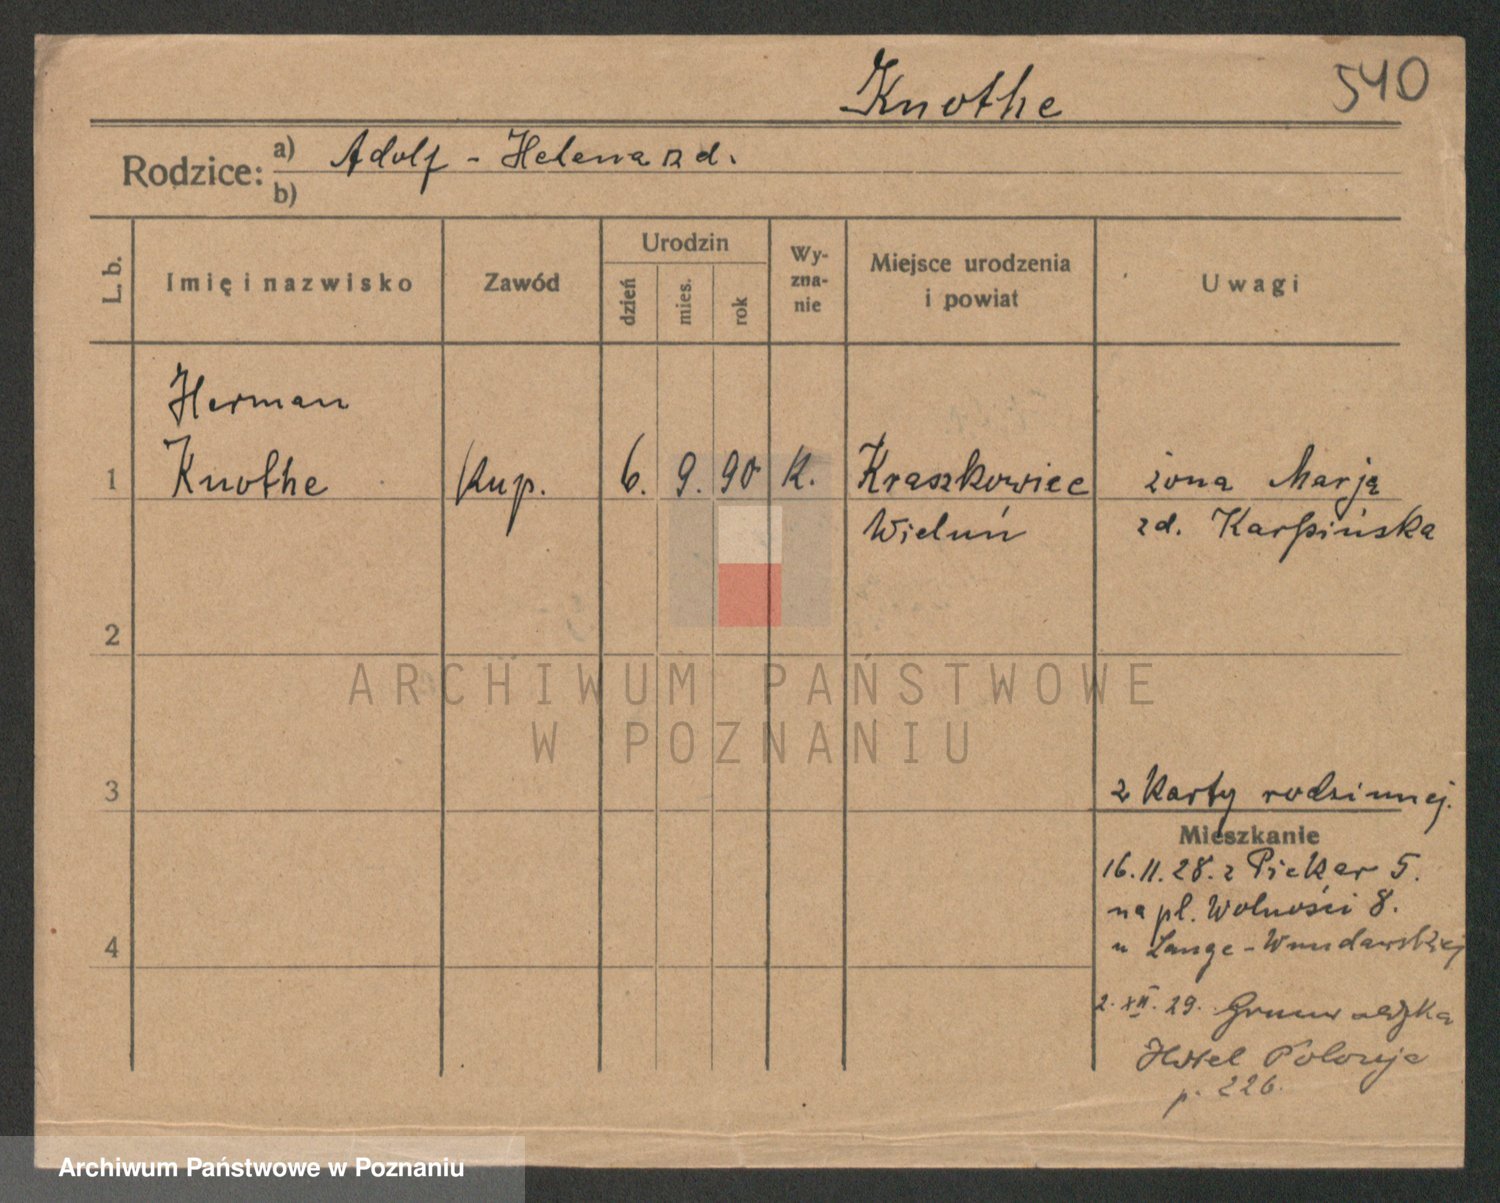 Knothe
540
Rodzice:
a) Adolf - Helena zd.
b)
L. b.
Imię i nazwisko
Zawód
Urodzin
dzień
mies.
rok
Wy-
zna-
nie
Miejsce urodzenia
i powiat
Uwagi
Herman
1 Knothe Kup. 6. 9. 90 K. Kraszkowice żona Marją
Wieluń zd. Karpińska
2
ARCHIWUM PAŃSTWOWE
W POZNANIU
z Karty rodzinnej.
3
Mieszkanie
16.11.28. z Piekar 5.
na pl. Wolności 8.
4 u Lange-
2. XII. 29. Grunwaldzka
Hotel Polonja
p. 226.
Archiwum Państwowe w Poznaniu